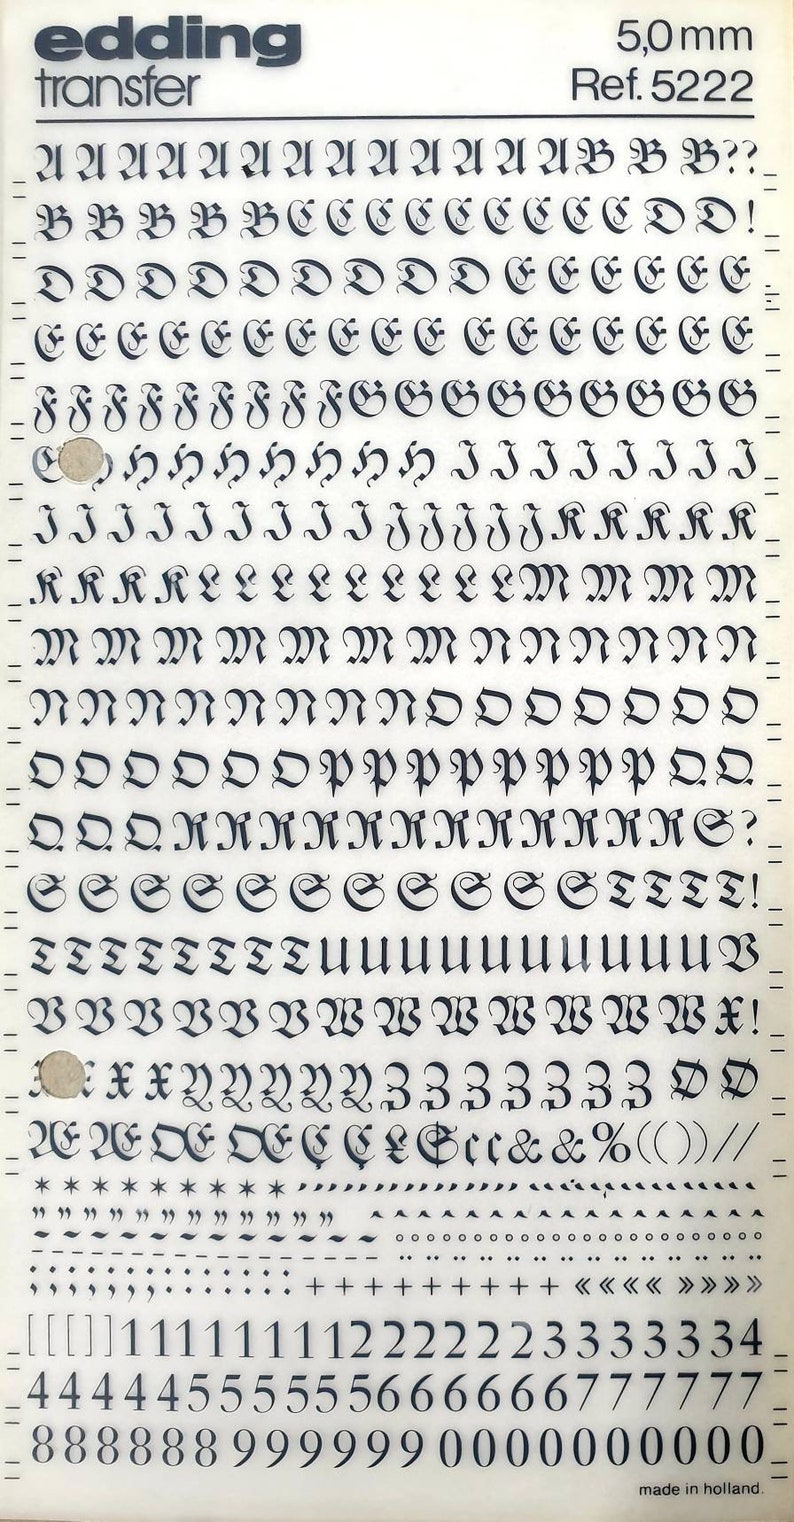 edding
transfer
5,0 mm
Ref. 5222
A A A A A A A A A A A A A B B B ? ?
B B B B B C C C C C C C C C D D !
D D D D D D D D D E E E E E E
E E E E E E E E E E E E E E E E E
F F F F F F F F F G G G G G G G G G
H H H H H H H I I I I I I I I
I I I I I I I I I J J J J J K K K K K
K K K K L L L L L L L L L M M M M
M M M M M M M N N N N N N
N N N N N N N N O O O O O O O
O O O O O O P P P P P P P P Q Q
Q Q Q R R R R R R R R R R R R S ?
S S S S S S S S S S S T T T T !
T T T T T T T T U U U U U U U U U U V
V V V V V V W W W W W W W X !
X X Y Y Y Y Y Z Z Z Z Z Z Z Ø Ø
Æ Æ Œ Œ Ç Ç £ $ ¢ ¢ & & % ( ( ) ) / /
* * * * * * * * *
+ + + + + + + + + « « « « » » » »
[ [ [ ] ] 1 1 1 1 1 1 1 1 2 2 2 2 2 2 3 3 3 3 3 3 4
4 4 4 4 4 5 5 5 5 5 5 6 6 6 6 6 6 7 7 7 7 7 7
8 8 8 8 8 8 9 9 9 9 9 9 0 0 0 0 0 0 0 0 0 0
made in holland.